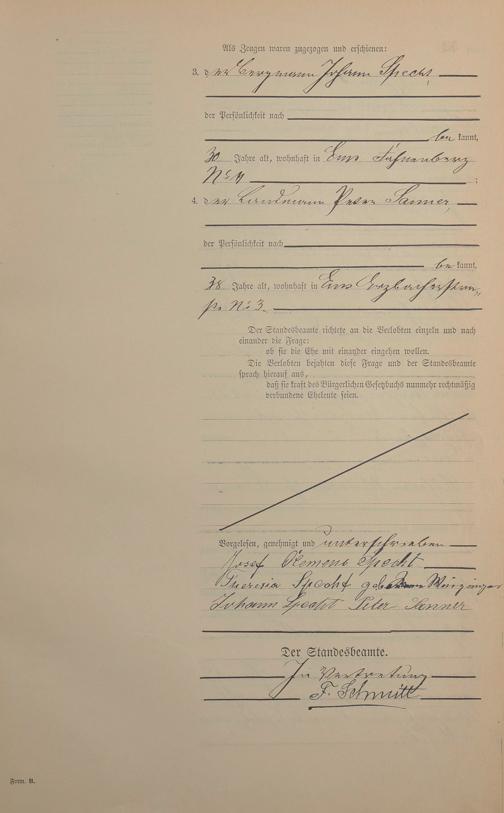 Als Zeugen waren zugezogen und erschienen:
3. der Bergmann Johann Specht,
der Persönlichkeit nach
be kannt,
30 Jahre alt, wohnhaft in Ems
No 4 ;
4. der Landmann Peter Sanner,
der Persönlichkeit nach
be kannt,
38 Jahre alt, wohnhaft in Ems
No 3.
Der Standesbeamte richtete an die Verlobten einzeln und nach
einander die Frage:
ob sie die Ehe mit einander eingehen wollen.
Die Verlobten bejahten diese Frage und der Standesbeamte
sprach hierauf aus,
daß sie kraft des Bürgerlichen Gesetzbuchs nunmehr rechtmäßig
verbundene Eheleute seien.
Vorgelesen, genehmigt und unterschrieben
Josef Klemens Specht
Theresia Specht geb
Johann Specht Peter Sanner
Der Standesbeamte.
In Vertretung
F. Schmitt
Form. B.